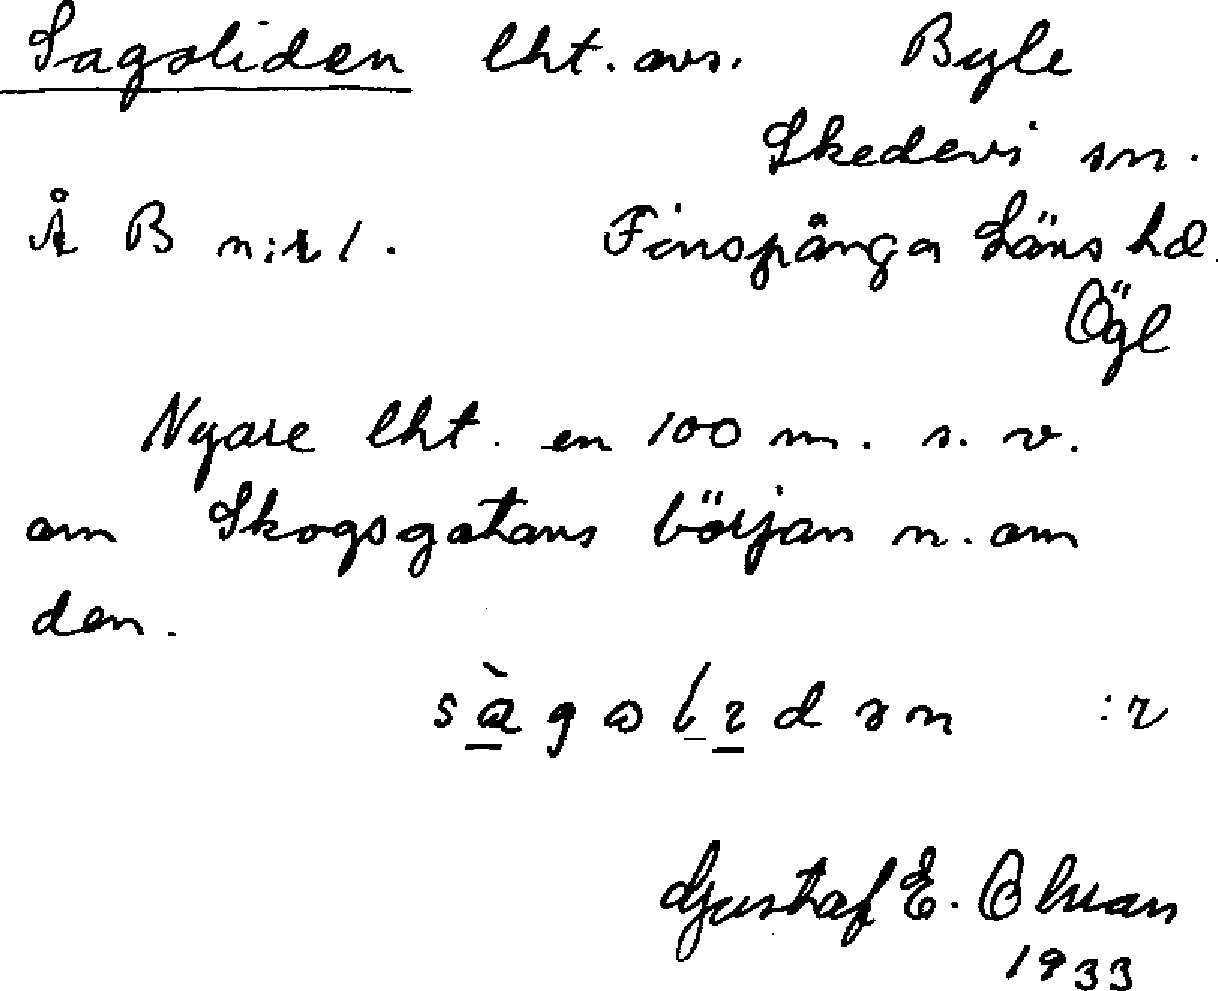 Sagaliden lht. avs. Byle
Skedevi sn.
Å B n:r 1. Finspånga Läns hd.
Ögl
Nyare lht. en 100 m. s. v.
om Skogsgatans början n. om
den.
:r
Gustaf E. Olsson
1933